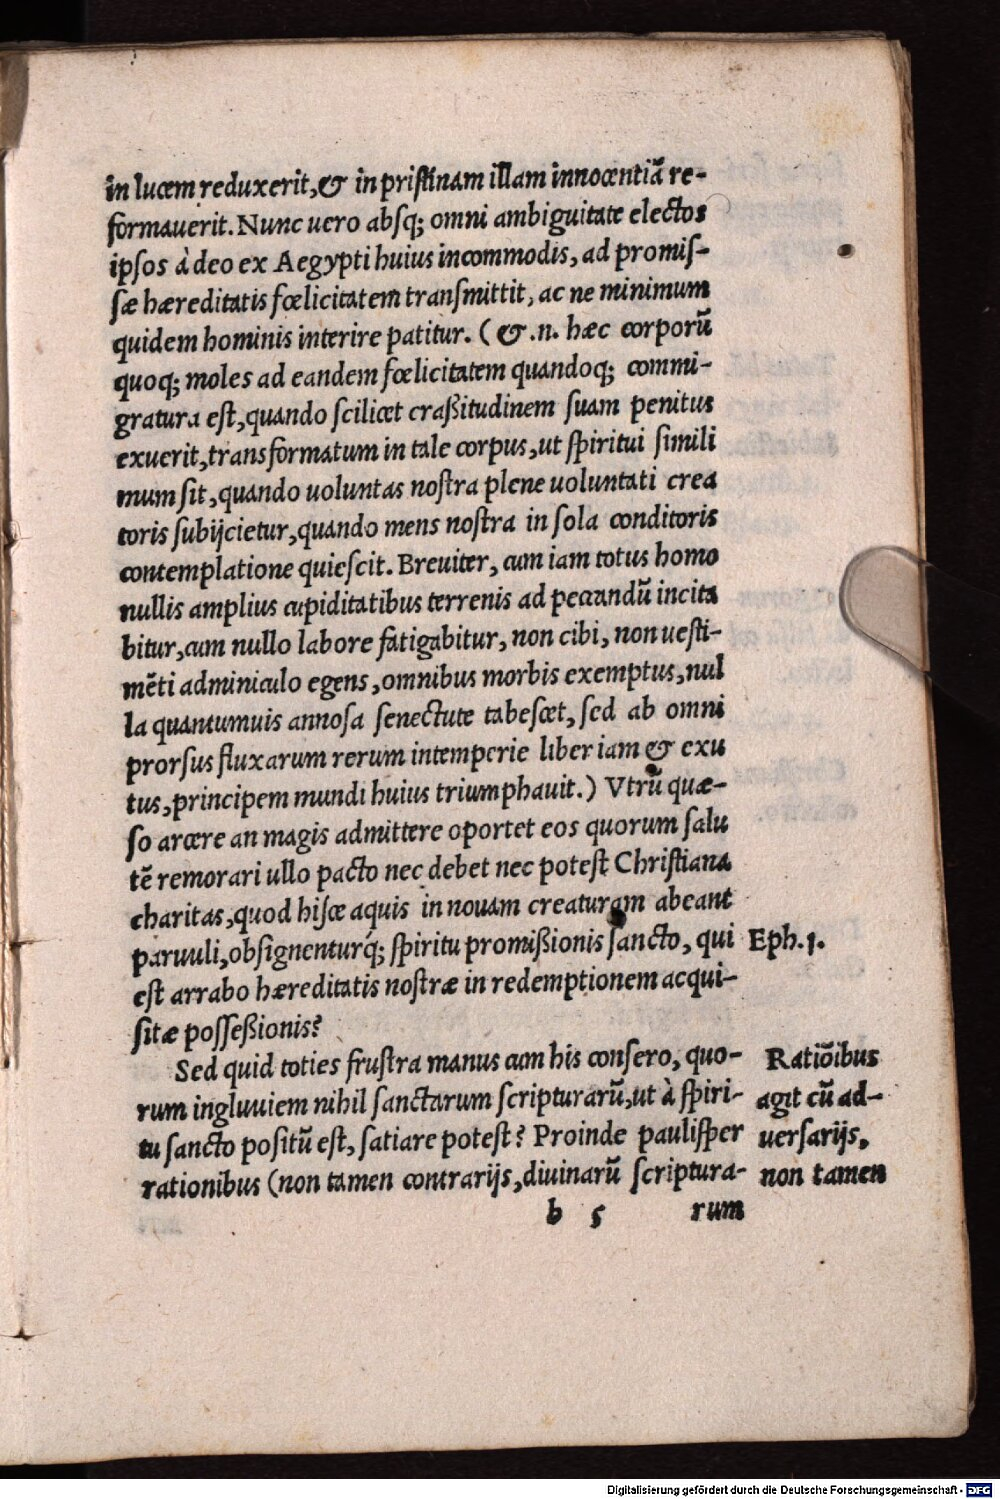 in lucem reduxerit, & in pristinam illam innocentiã re-
formauerit. Nunc uero absq; omni ambiguitate electos
ipsos à deo ex Aegypti huius incommodis, ad promis-
sæ hæreditatis fœlicitatem transmittit, ac ne minimum
quidem hominis interire patitur. (&.n. hæc corporũ
quoq; moles ad eandem fœlicitatem quandoq; commi-
gratura est, quando scilicet craßitudinem suam penitus
exuerit, transformatum in tale corpus, ut spiritui simili
mum sit, quando uoluntas nostra plene uoluntati crea
toris subijcietur, quando mens nostra in sola conditoris
contemplatione quiescit. Breuiter, cum iam totus homo
nullis amplius cupiditatibus terrenis ad peccandũ incita
bitur, cum nullo labore fatigabitur, non cibi, non uesti-
mẽti adminiculo egens, omnibus morbis exemptus, nul
la quantumuis annosa senectute tabescet, sed ab omni
prorsus fluxarum rerum intemperie liber iam & exu
tus, principem mundi huius triumphauit.) Vtrũ quæ-
so arcere an magis admittere oportet eos quorum salu
tẽ remorari ullo pacto nec debet nec potest Christiana
charitas, quod hisce aquis in nouam creaturam abeant
paruuli, obsignenturq́; spiritu promißionis sancto, qui
Eph. 1.
est arrabo hæreditatis nostræ in redemptionem acqui-
sitæ posseßionis?
Sed quid toties frustra manus cum his consero, quo-
rum ingluuiem nihil sanctarum scripturarũ, ut à spiri-
tu sancto positũ est, satiare potest? Proinde paulisper
rationibus (non tamen contrarijs, diuinarũ scriptura-
Ratiõibus
agit cũ ad-
uersarijs,
non tamen
b 5 rum
Digitalisierung gefördert durch die Deutsche Forschungsgemeinschaft - DFG